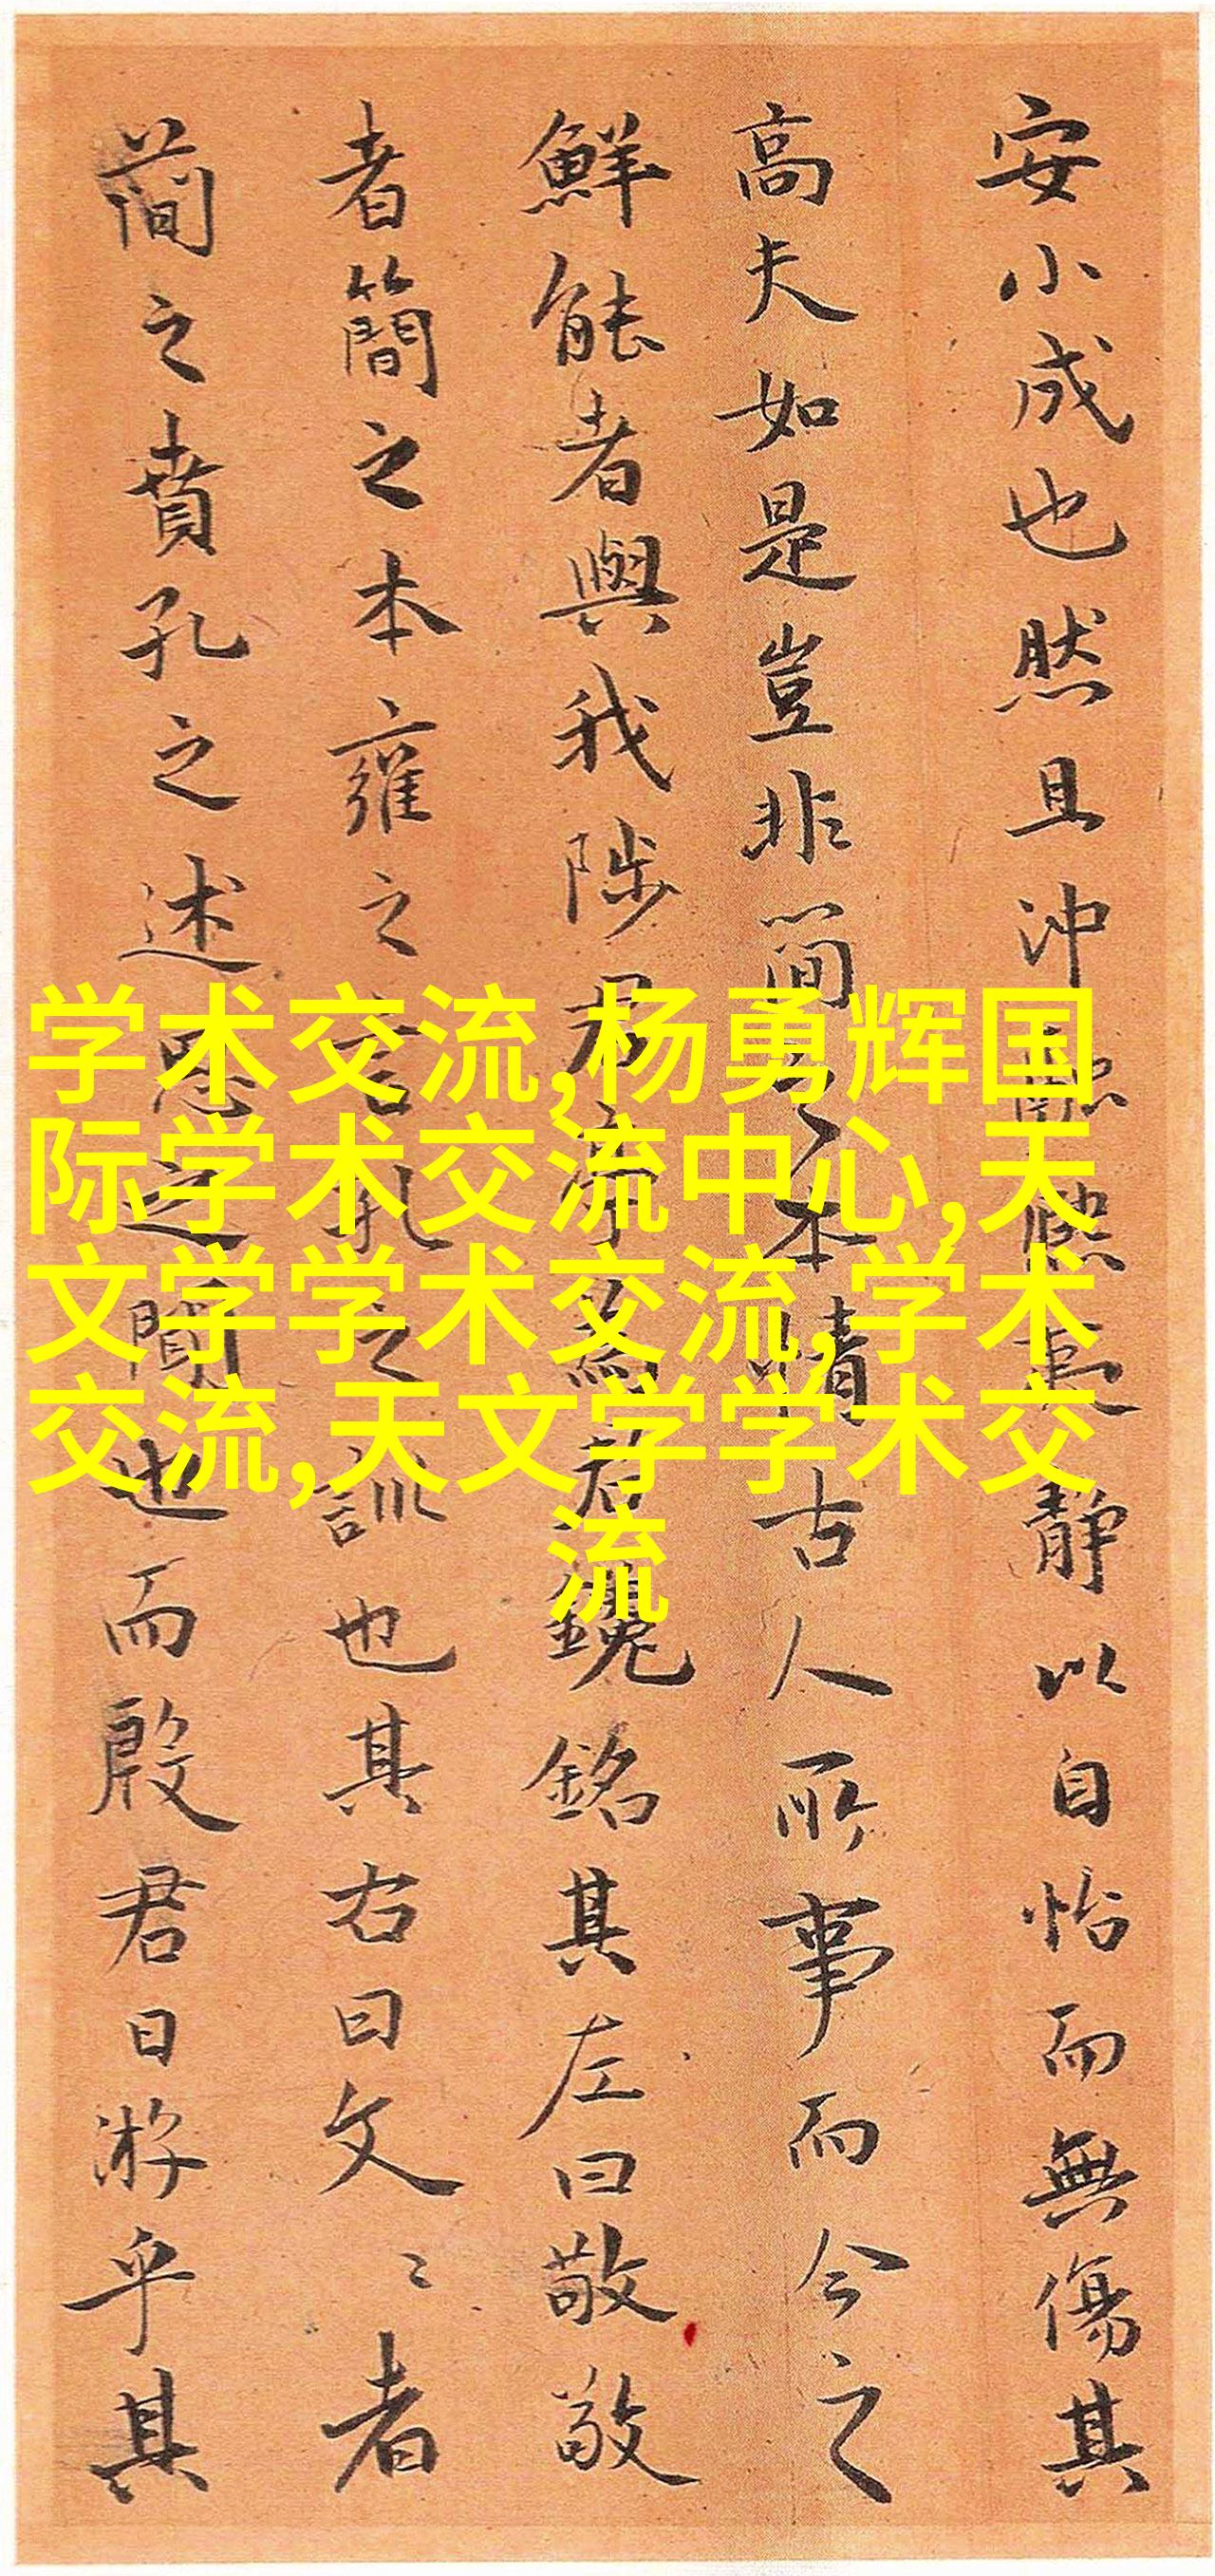 安小成也然且沖熙熙焉静以自怡而無傷其
高夫如是豈非簡之本情古人所事而今之
鮮能者與我陟君亭焉君鑱銘其左曰敬敬
者簡之本雍之言孔之訓也其右曰文〻者
蕳之賁孔之述思之閒也而殷君日游乎其
学术交流,杨勇辉国
际学术交流中心,天
文学学术交流,学术
交流,天文学学术交
流